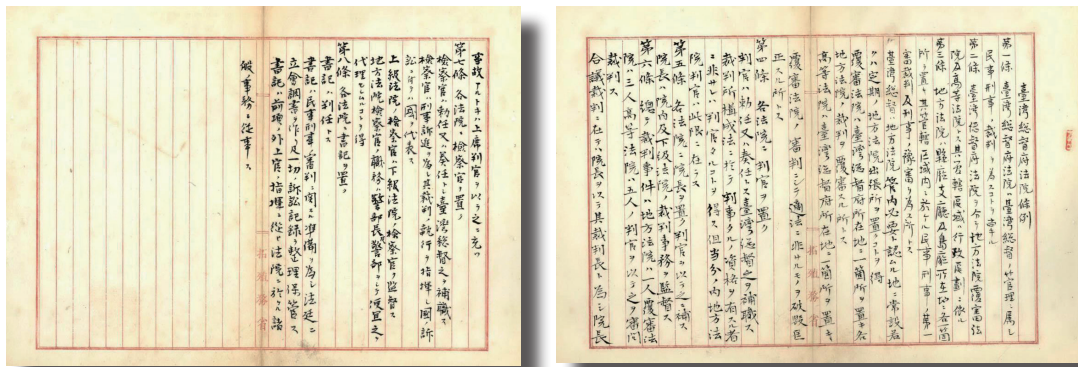 臺灣總督府法院條例
第一條 臺灣總督府法院ハ臺灣總督ノ管理ニ屬シ
民事刑事ノ裁判ヲ為スコトヲ掌ル
第二條 臺灣總督府法院ヲ分チ地方法院覆審法
院及高等法院トス其管轄區域ハ行政區劃ニ依ル
第三條 地方法院ハ縣廳支廳及島廳所在地ニ各一箇
所ヲ置キ其管轄區域内ニ於ケル民事刑事ノ第一
審裁判及刑事ノ豫審ヲ為ス所トス
臺灣總督ハ地方法院管内必要ト認ムル地ニ常設若
クハ定期ノ地方法院出張所ヲ置クコトヲ得
覆審法院ハ臺灣總督府所在地ニ一箇所ヲ置キ各
地方法院ノ裁判ヲ覆審スル所トス
高等法院ハ臺灣總督府所在地ニ一箇所ヲ置キ
覆審法院ノ審判ニシテ適法ニ非サルモノヲ破毀匡
正スル所トス
第四條 各法院ニ判官ヲ置ク
判官ハ勅任又ハ奏任トス臺灣總督之ヲ補職ス
裁判所構成法ニ於テ判事タルノ資格ヲ有スル者
ニ非サレハ判官タルコトヲ得ス但當分ノ内地方法
院判官ハ此限ニ在ラス
第五條 各法院ニ院長ヲ置ク判官ヲ以テ之ニ補ス
院長ハ院内及下級法院ノ裁判事務ヲ監督ス
第六條 總テ裁判事件ハ地方法院ハ一人覆審法
院ハ三人高等法院ハ五人ノ判官ヲ以テ之ヲ審問
裁判ス
合議裁判ニ在テハ院長ヲ以テ其裁判長ト為シ院長
事故アルトキハ上席判官ヲ以テ之ニ充ツ
第七條 各法院ニ檢察官ヲ置ク
檢察官ハ勅任又ハ奏任トス臺灣總督之ヲ補職ス
檢察官ハ刑事訴追ヲ為シ其裁判ノ執行ヲ指揮シ國訴
訟ニ付テハ國ヲ代表ス
上級法院ノ檢察官ハ下級法院ノ檢察官ヲ監督ス
地方法院檢察官ノ職務ハ警部長警部ヲシテ便宜之ヲ
代理セシムルコトヲ得
第八條 各法院ニ書記ヲ置ク
書記ハ判任トス
書記ハ民事刑事ノ審判ニ関スル準備ヲ為シ法廷ニ
立會調書ヲ作リ及一切訴訟記録ヲ整理保管ス
書記ハ前項ノ外上官ノ指揮ニ從ヒ法院ニ於ケル諸
般ノ事務ニ從事ス